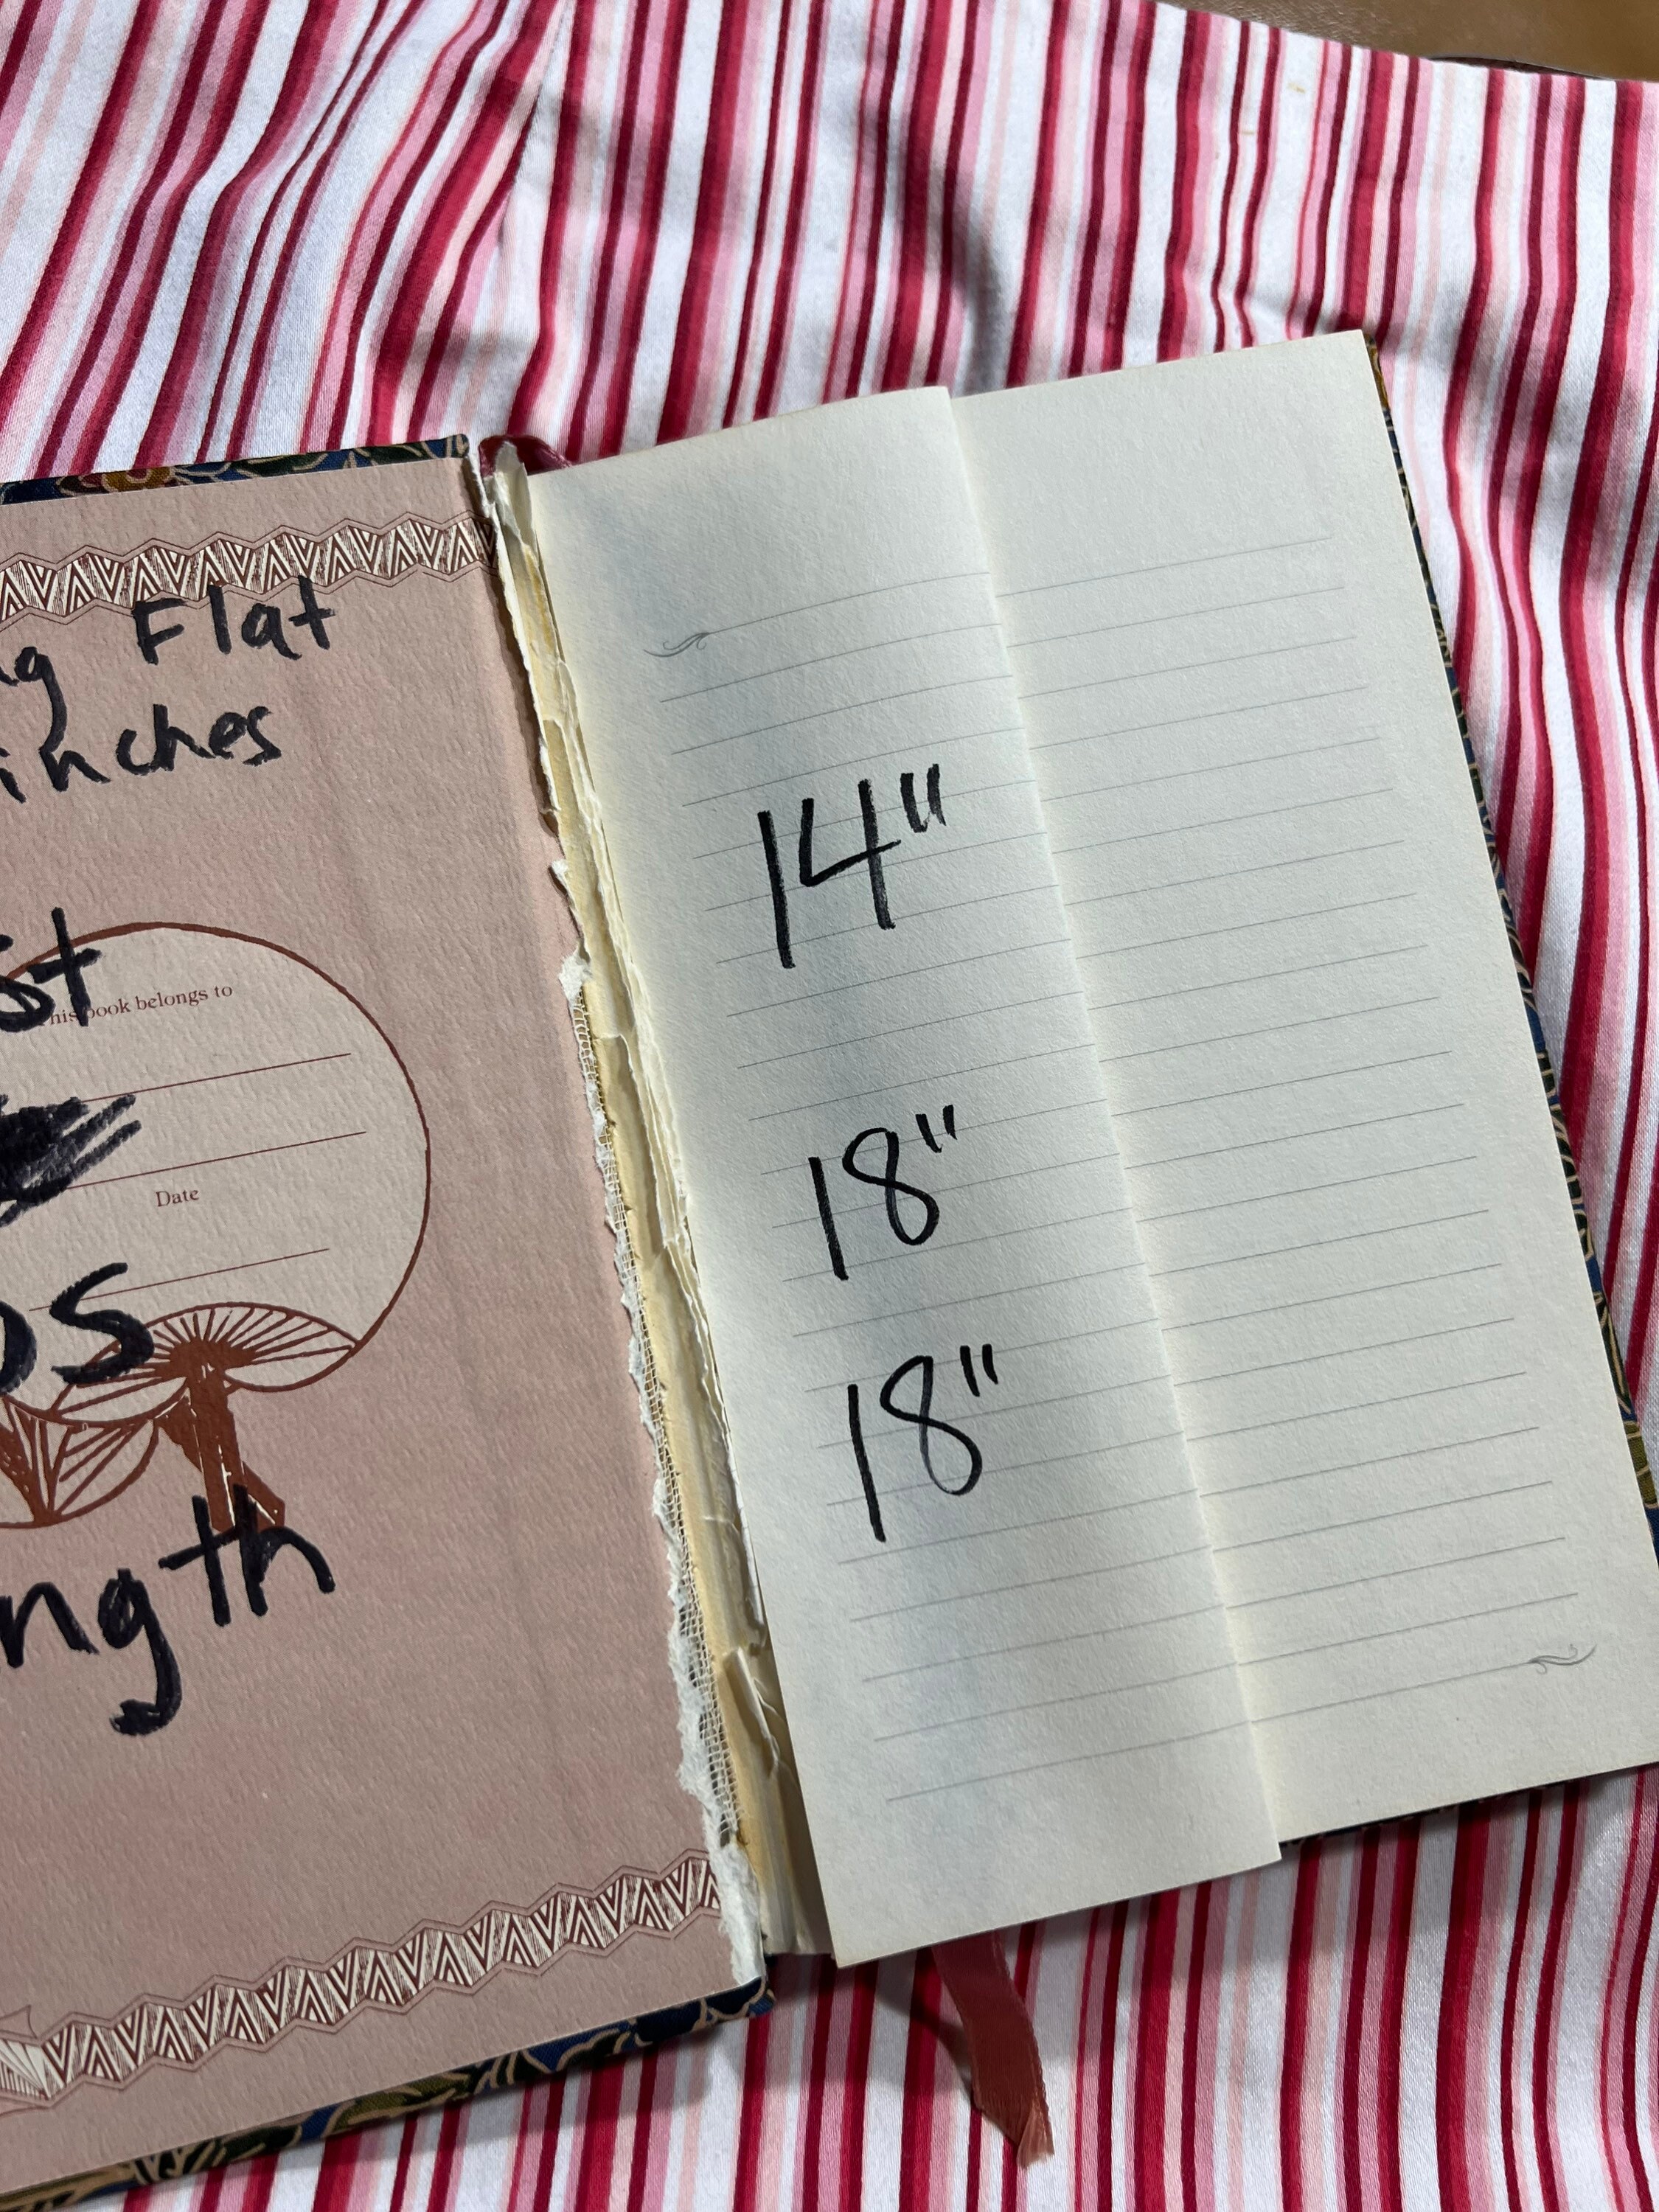 ng Flat
inches
st
his book belongs to
Date
os
ngth
14"
18"
18"